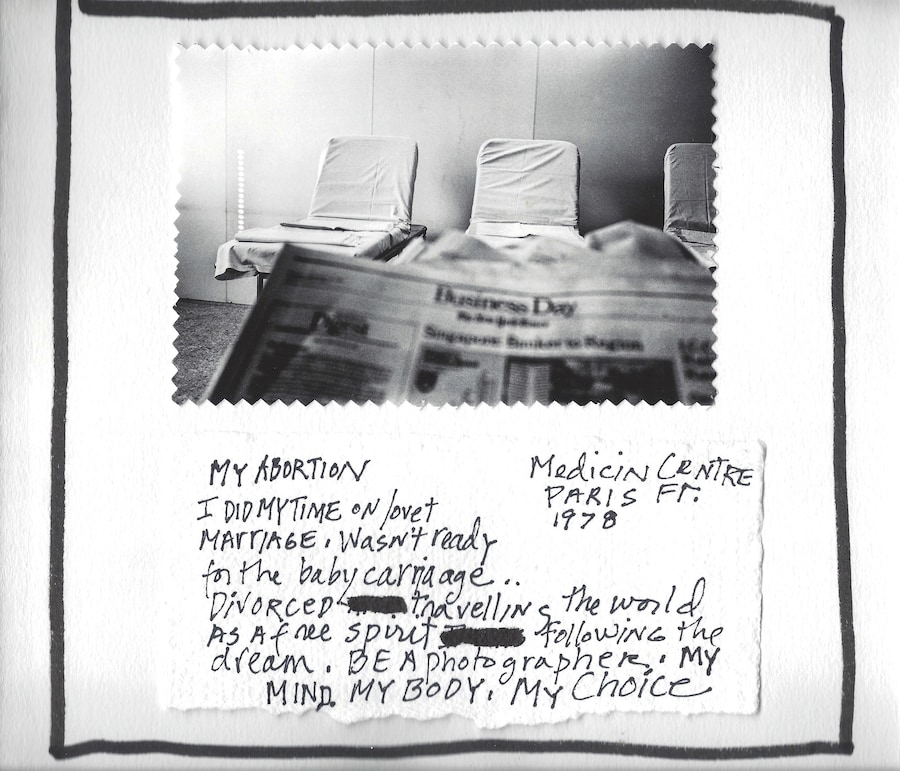 Business Day
Singapore: Banker to Region
MY ABORTION
Medicin CENTRE
PARIS Fr.
1978
I DID MY TIME ON love +
MARRIAGE. Wasn't ready
for the baby carriaage..
DIVORCED travelling the world
AS A free spirit following the
dream. BE A photographer. MY
MIND. MY BODY. MY Choice